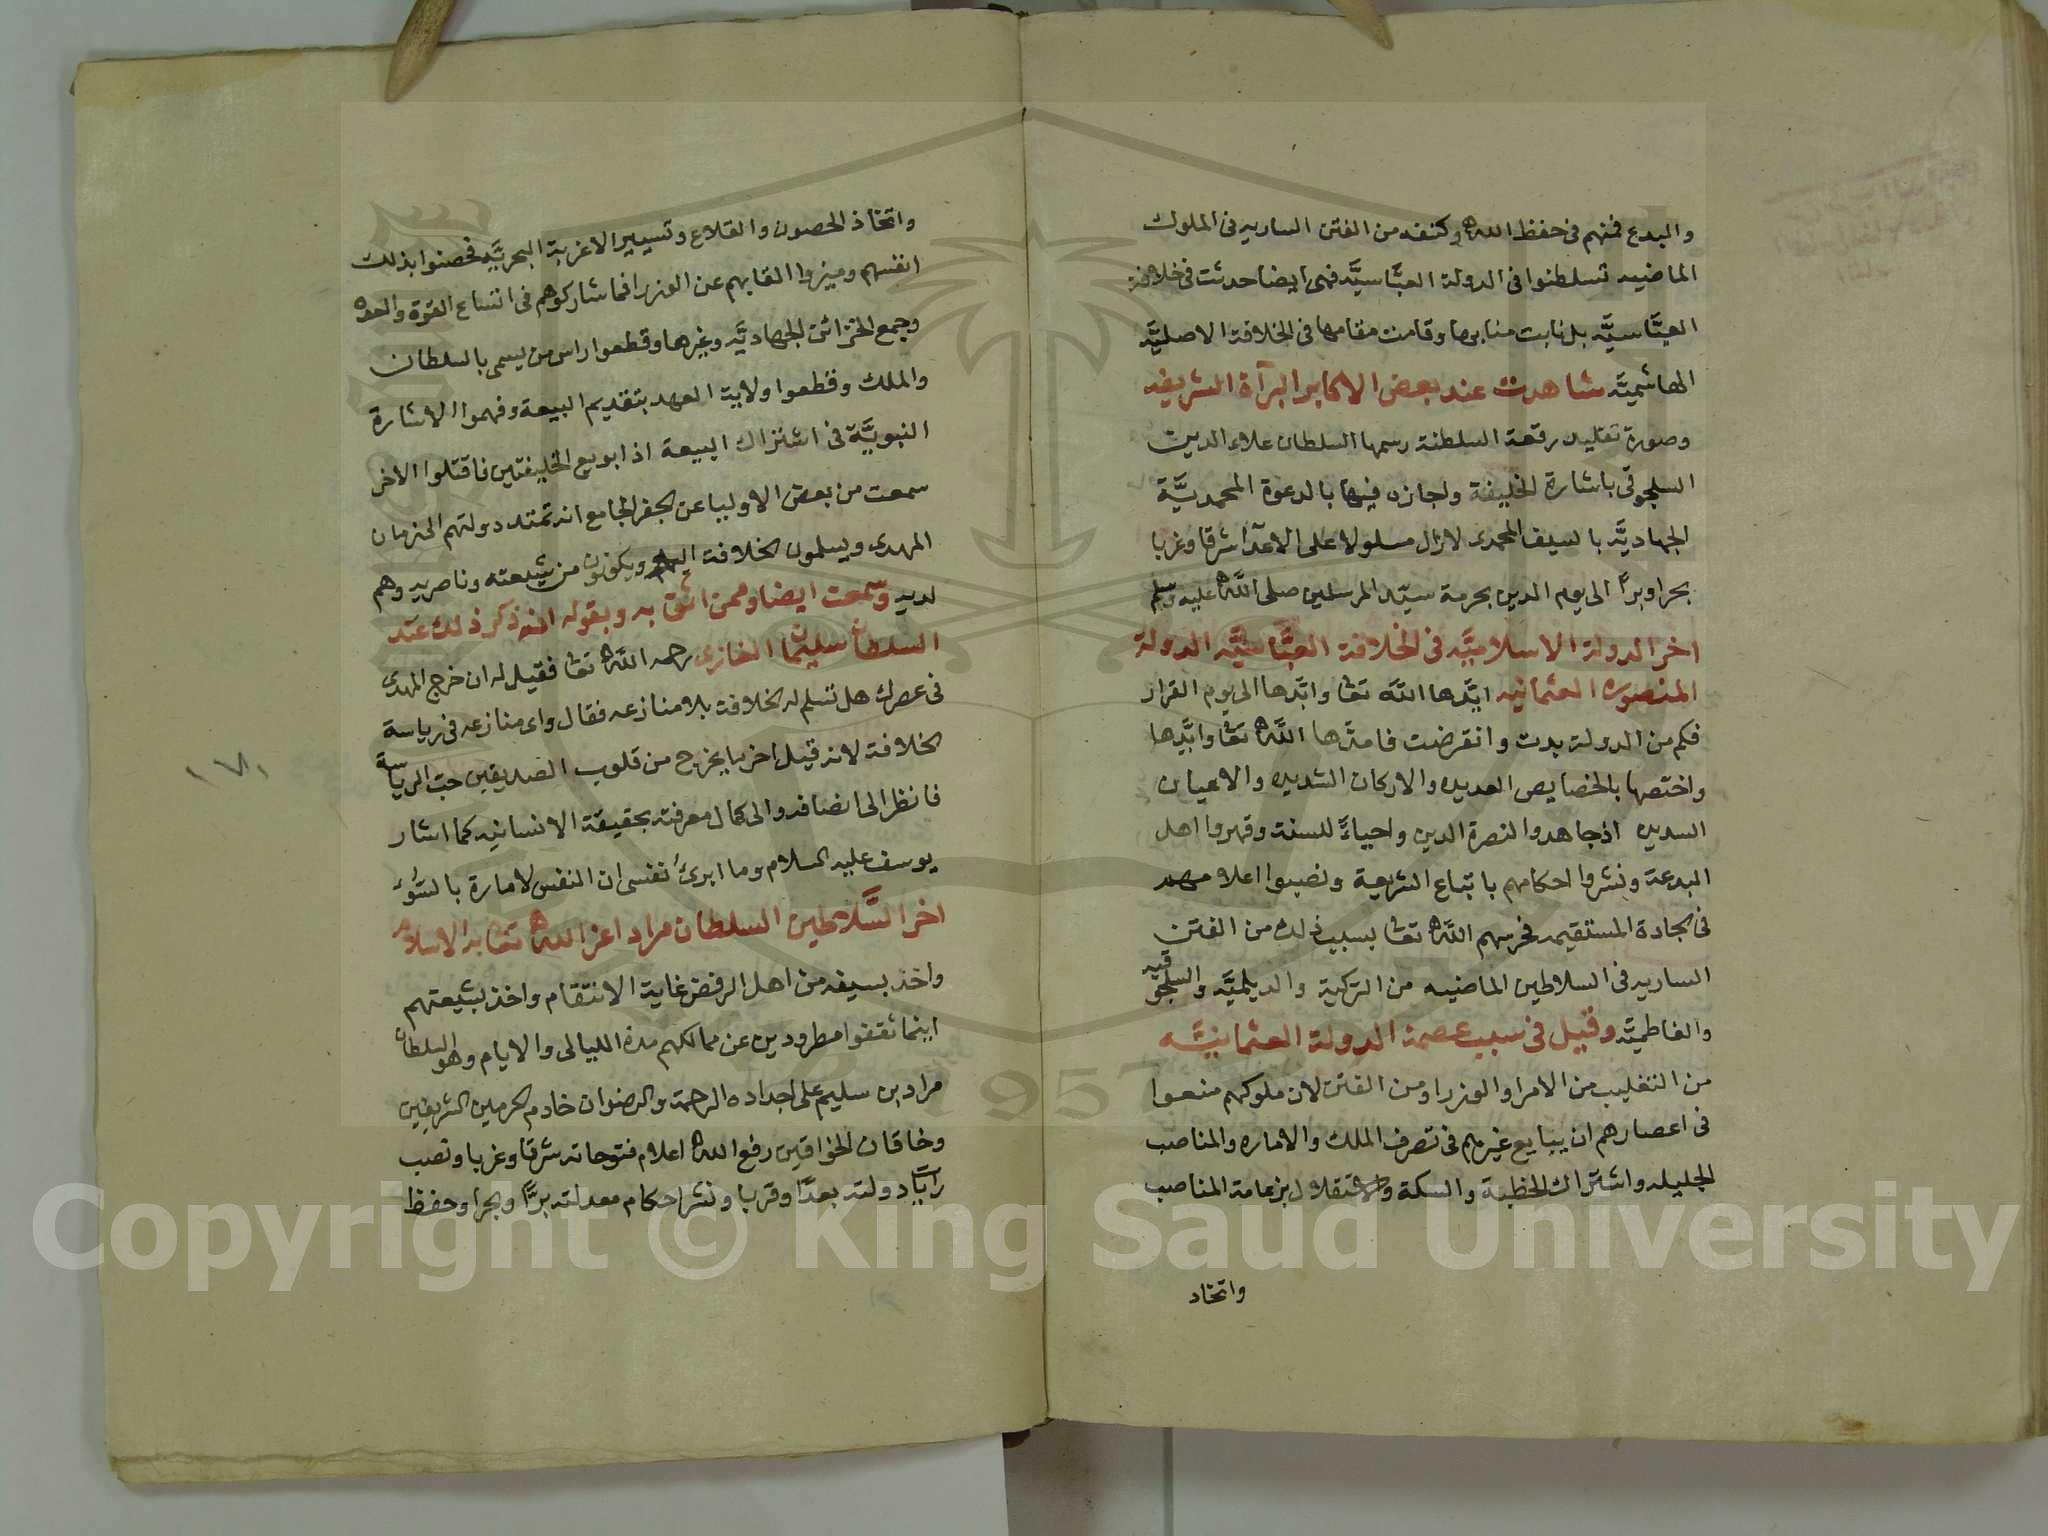 والبدع فمنهم فى حفظ الله وكنفه من الفتن الساريه فى الملوك
الماضيه تسلطنوا فى الدولة العبَّاسيَّه فهى ايضا حدثت فى خلافة
العبَّاسيَّه بل نابت منابها وقامت مقامها فى الخلافة الاصليَّه
الهاشميَّه شاهدت عند بعض الاكابر البرآة الشريفه
وصورة تقليد رقعة السلطنة رسمها السلطان علاء الدين
السلجوقى باشارة الخليفة واجازه فيها بالدعوة المحمديَّة
الجهاديَّه بالسيف المحمدى لازال مسلولا على الاعدآ شرقا وغربا
بحرا وبرًا الى يوم الدين بحرمة سيّد المرسلين صلى الله عليه وسلم
اخر الدولة الاسلاميَّه فى الخلافة العبَّاسيَّه الدولة
المنصوره العثمانيه ايَّدها الله تعا وابَّدها الى يوم القرار
فكم من الدولة بدت وانقرضت فامدَّها الله تعا وابَّدها
واختصها بالخصايص العديده والاركان الشديده والاعيان
السديده اذ جاهدوا لنصرة الدين واحياءً للسنة وقهروا اهل
البدعة ونشروا احكامهم باتباع الشريعة ونصبوا اعلامهم
فى الجادة المستقيمه فحرسهم الله تعا بسبب ذلك من الفتن
الساريه فى السلاطين الماضيه من التركية والديلميَّه والسلجوقيه
والفاطميَّه وقيل فى سبب عصمة الدولة العثمانيَّه
من التغليب من الامرا والوزرا ومن الفتن لان ملوكهم منعوا
فى اعصارهم ان يبايع غيرهم فى تصرف الملك والاماره والمناصب
الجليله واشتراك الخطبة والسكة والاستقلال بزعامة المناصب
واتخاد
واتخاذ الحصون والقلاع وتسيير الاغربة البحريَّه فحصنوا بذلك
انفسهم وميزوا القابهم عن الوزرا فما شاركوهم فى اتساع القوة والعده
وجمع الخزائن الجهاديَّه وغيرها وقطعوا راس من يسمى بالسلطان
والملك وقطعوا ولاية العهد بتقديم البيعة وفهموا الاشارة
النبويَّة فى اشتراك البيعة اذا بويع الخليفتين فاقتلوا الاخر
سمعت من بعض الاوليا عن الجفر الجامع انه تمتد دولتهم الى زمان
المهدى ويسلمون الخلافة اليه ويكونون من شيعته وناصريه وهم
لديه وسمعت ايضا وممن اثق به وبقوله انه ذكر ذلك عند
السلطان سليمان الغازى رحمه الله تعا فقيل له ان خرج المهدى
فى عصرك هل تسلم له الخلافة بلا منازعه فقال واى منازعه فى رياسة
الخلافة لانه قيل اخر ما يخرج من قلوب الصديقين حب الرياسة
فانظر الى انصافه والى كمال معرفته بحقيقة الانسانيه كما اشار
يوسف عليه السلام وما ابرئ نفسى ان النفس لامارة بالسُّوء
اخر السَّلاطين السلطان مراد اعز الله تعا به الاسلام
واخذ بسيفه من اهل الرفض غاية الانتقام واخذ بشيعتهم
اينما ثقفوا مطرودين عن ممالكهم مدة الليالى والايام وهو السلطان
مراد بن سليم على اجداده الرحمة والرضوان خادم الحرمين الشريفين
وخاقان الخواقين رفع الله اعلام فتوحاته شرقا وغربا ونصب
رايات دولته بعدًا وقربا ونشر احكام معدلته برًّا وبحرا وحفظ
١٧٨
Copyright © King Saud University
1957